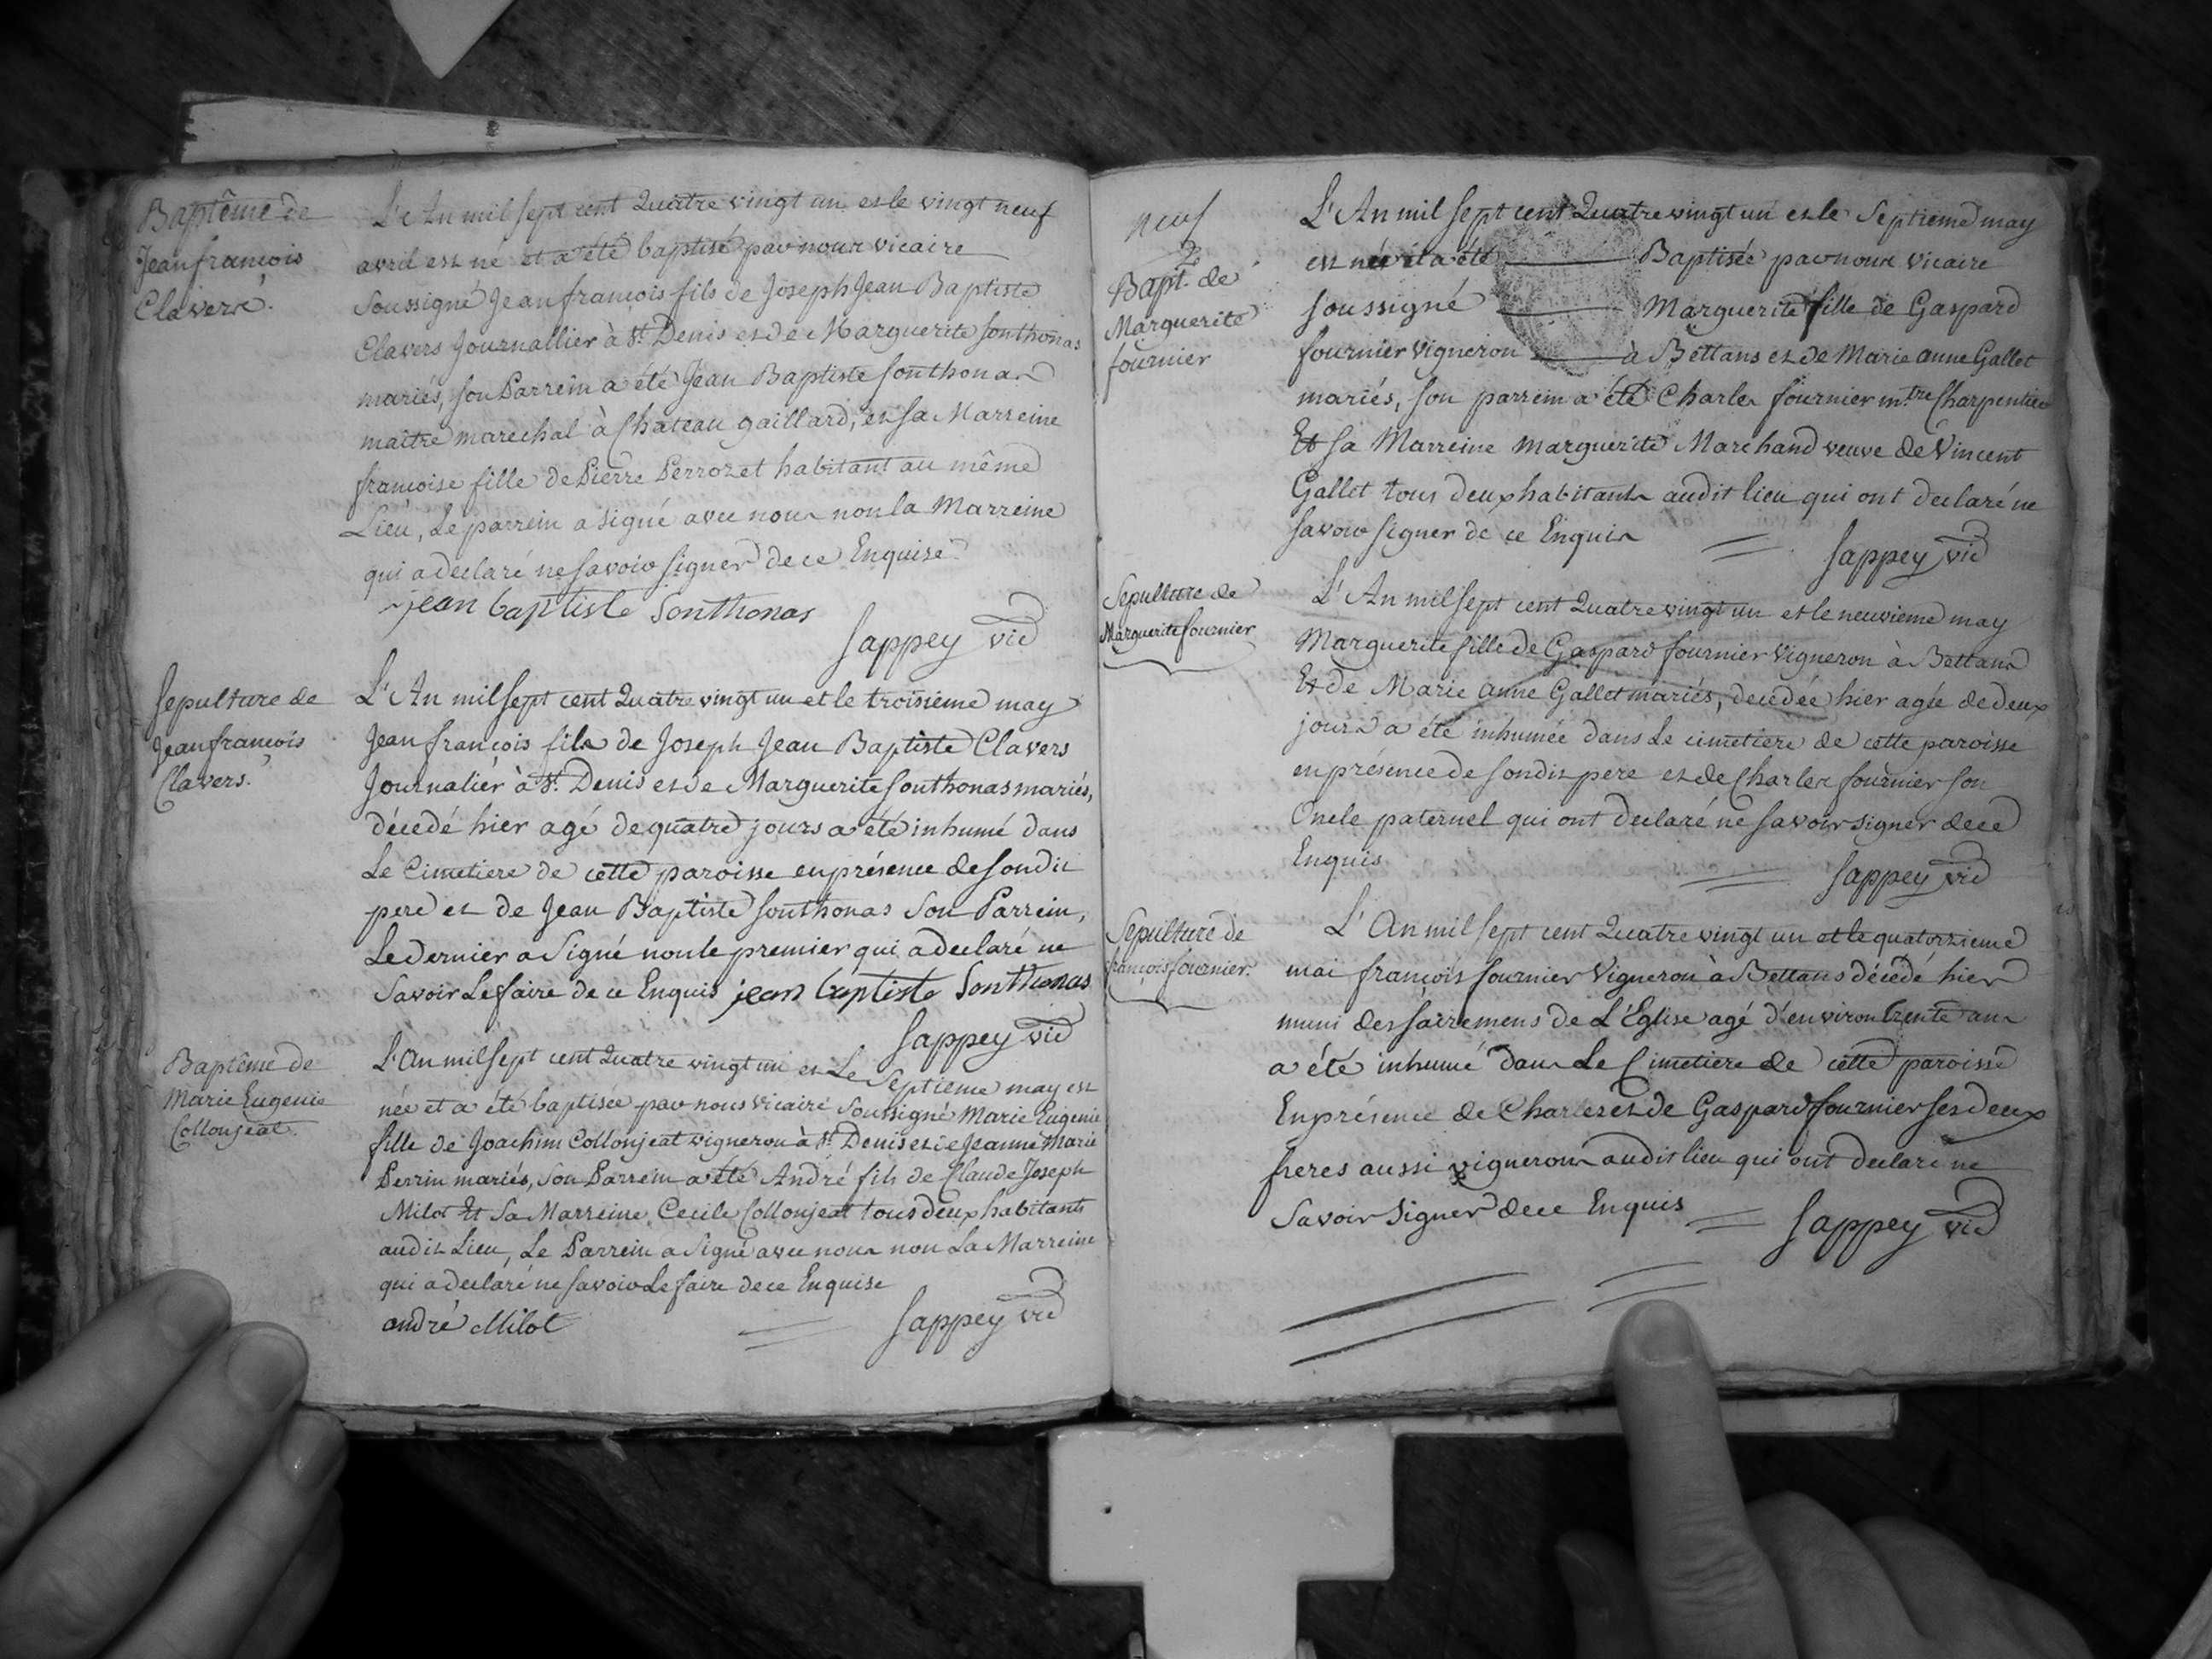 Baptême de
Jean françois
Clavers.
L'An mil sept cent Quatre vingt un et le vingt neuf
avril est né et a été baptisé par nous vicaire
Soussigné Jean françois fils de Joseph Jean Baptiste
Clavers Journallier à St. Denis et de Marguerite Sonthonas
mariés, son Parrein a été Jean Baptiste Sonthonas
maitre marechal à Chateau gaillard, et sa Marreine
françoise fille de Pierre Perrozet habitant au même
Lieu, Le parrein a signé avec nous non la Marreine
qui a declaré ne savoir signer de ce Enquise
jean baptiste Sonthonas
Sappey vic
Sepulture de
Jean françois
Clavers.
L'An mil sept cent Quatre vingt un et le troisieme may
Jean françois fils de Joseph Jean Baptiste Clavers
Journalier à St. Denis et de Marguerite Sonthonas mariés,
décedé hier agé de quatre jours a été inhumé dans
Le Cimetiere de cette paroisse en présence de son dit
pere et de Jean Baptiste Sonthonas Son Parrein,
Le dernier a Signé non le premier qui a declaré ne
Savoir Le faire de ce Enquis jean baptiste Sonthonas
Sappey vic
Baptême de
Marie Eugenie
Collonjeat.
L'An mil sept cent Quatre vingt un et Le Septieme may est
née et a été baptisée par nous vicaire Soussigné Marie Eugenie
fille de Joachim Collonjeat vigneron à St. Denis et de Jeanne Marie
Perrin mariés, Son Parrein a été André fils de Claude Joseph
Milot Et Sa Marreine Cecile Collonjeat tous deux habitants
audit Lieu, Le Parrein a Signé avec nous non La Marreine
qui a declaré ne savoir Le faire de ce Enquise
andré Milot
Sappey vic
neuf
Bapt. de
Marguerite
fournier
L'An mil sept cent Quatre vingt un et le Septieme may
est née et a été Baptisée par nous vicaire
soussigné Marguerite fille de Gaspard
fournier vigneron à Bettans et de Marie anne Gallet
mariés, son parrein a été Charles fournier m.tre Charpentier
Et sa Marreine Marguerite Marchand veuve de Vincent
Gallet tous deux habitants audit lieu qui ont declaré ne
savoir signer de ce Enquis
Sappey vic
Sepulture de
Marguerite fournier
L'An mil sept cent Quatre vingt un et le neuvieme may
Marguerite fille de Gaspard fournier vigneron à Bettans
Et de Marie anne Gallet mariés, decedée hier agée de deux
jours a été inhumée dans Le cimetiere de cette paroisse
en présence de son dit pere et de Charles fournier son
Oncle paternel qui ont declaré ne savoir signer de ce
Enquis
Sappey vic
Sepulture de
françois fournier.
L'An mil sept cent Quatre vingt un et le quatorzieme
mai françois fournier Vigneron à Bettans décédé hier
muni des sacremens de L'Eglise agé d'environ trente ans
a été inhumé dans Le Cimetiere de cette paroisse
En présence de Charles et de Gaspard fournier ses deux
freres aussi vignerons audit lieu qui ont declaré ne
Savoir Signer de ce Enquis
Sappey vic